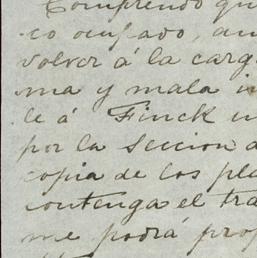 Comprendo qu
co ocupado, au
volver á la carg
ma y mala i
le á Finck u
por la Seccion d
copia de los pla
contenga el tra
me podrá prop